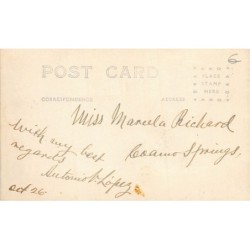 6
POST CARD
PLACE
STAMP
HERE
CORRESPONDENCE
ADDRESS
Miss Manuela Richard
Coamo Springs.
With my best
regards
Antonio López
oct 26